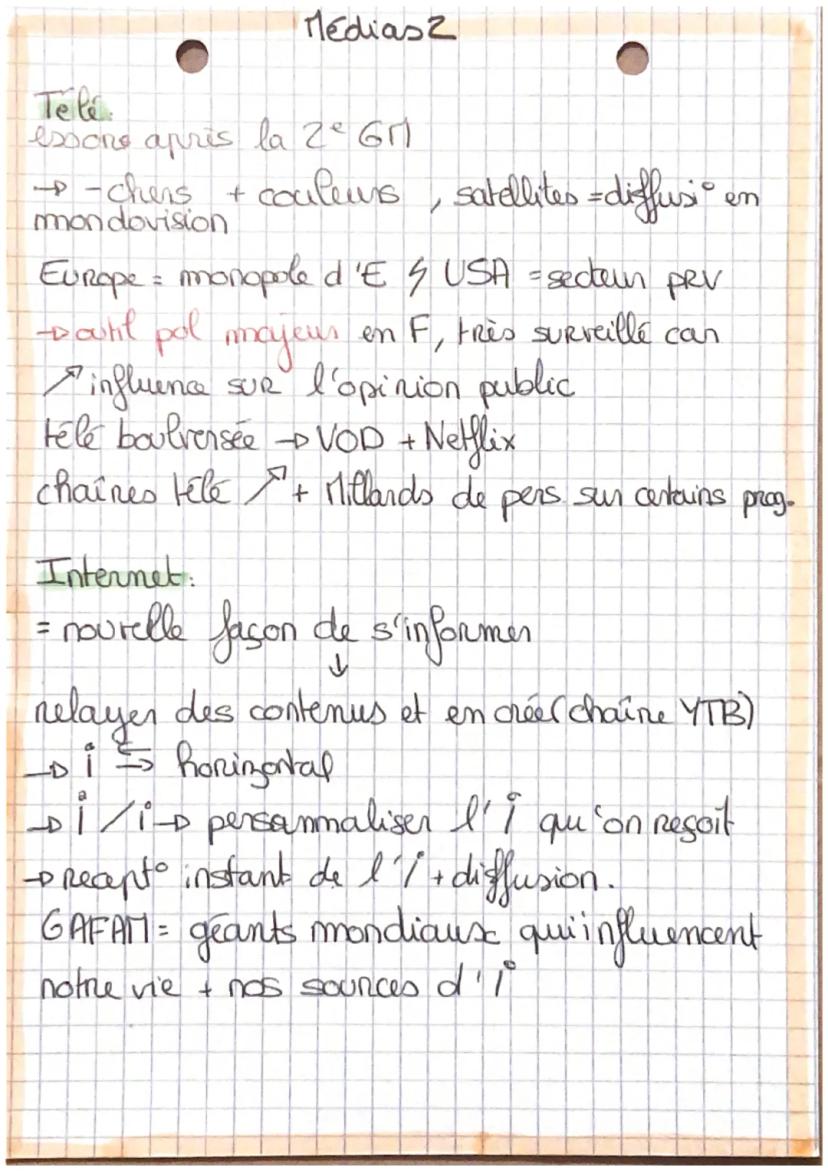 Médias 2
Télé:
essors après la 2e GM
→ - chers + couleurs , satellites = diffusi° en
mondovision
Europe = monopole d'E ↯ USA = secteur prv
→ outil pol majeur en F, très surveillé car
↗ influence sur l'opinion public
télé boulversée → VOD + Netflix
chaînes télé ↗ + Milliards de pers sur certains prog.
Internet:
= nouvelle façon de s'informer
↓
relayer des contenus et en créer (chaîne YTB)
→ i ⇆ horizontal
→ i / i → persannmaliser l'i° qu'on reçoit
→ recept° instant de l'i + diffusion.
GAFAM = géants mondiaux qui influencent
notre vie + nos sources d'i°